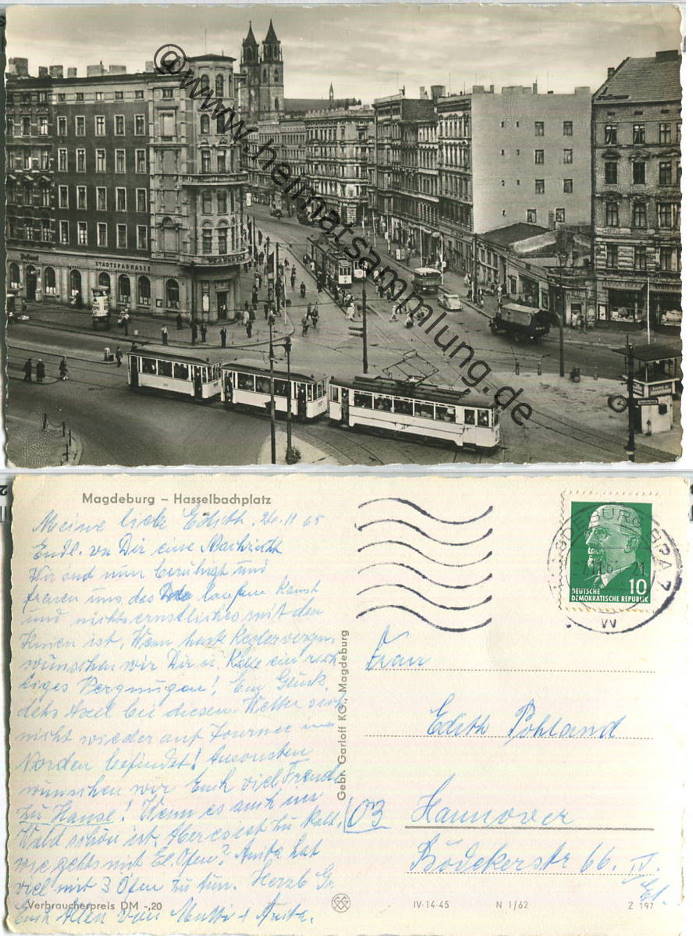 © www.heimatsammlung.de
STADTSPARKASSE
Magdeburg – Hasselbachplatz
Meine liebe Edith, 26.11.65
Endl. von Dir eine Nachricht
Wir sind nun beruhigt und
freuen uns das Du laufen kannst
und nichts ernstliches mit den
ist. Wenn
wünschen wir Dir u. Kalle ein rech
tiges Vergnügen! Ein Glück,
daß Axel bei diesem Wetter sich
nicht wieder auf Tournee im
Norden befindet! Ansonsten
wünschen wir Euch viel Freude
zu Hause! Wenn es auch im
Wald schön ist. Aber es ist zu kalt.
wie gehts mit El. Ofen? Anita hat
viel mit 3 Öfen zu tun. Herzl. Gr.
Euch Allen von Mutti + Anita.
Verbraucherpreis DM -,20
Gebr. Garloff KG., Magdeburg
MAGDEBURG BPA 7
DEUTSCHE
DEMOKRATISCHE REPUBLIK
10
Frau
Edith Pohland
(03) Hannover
Bödekerstr 66. IV.
Et.
IV-14-45 N 1/62 Z 197